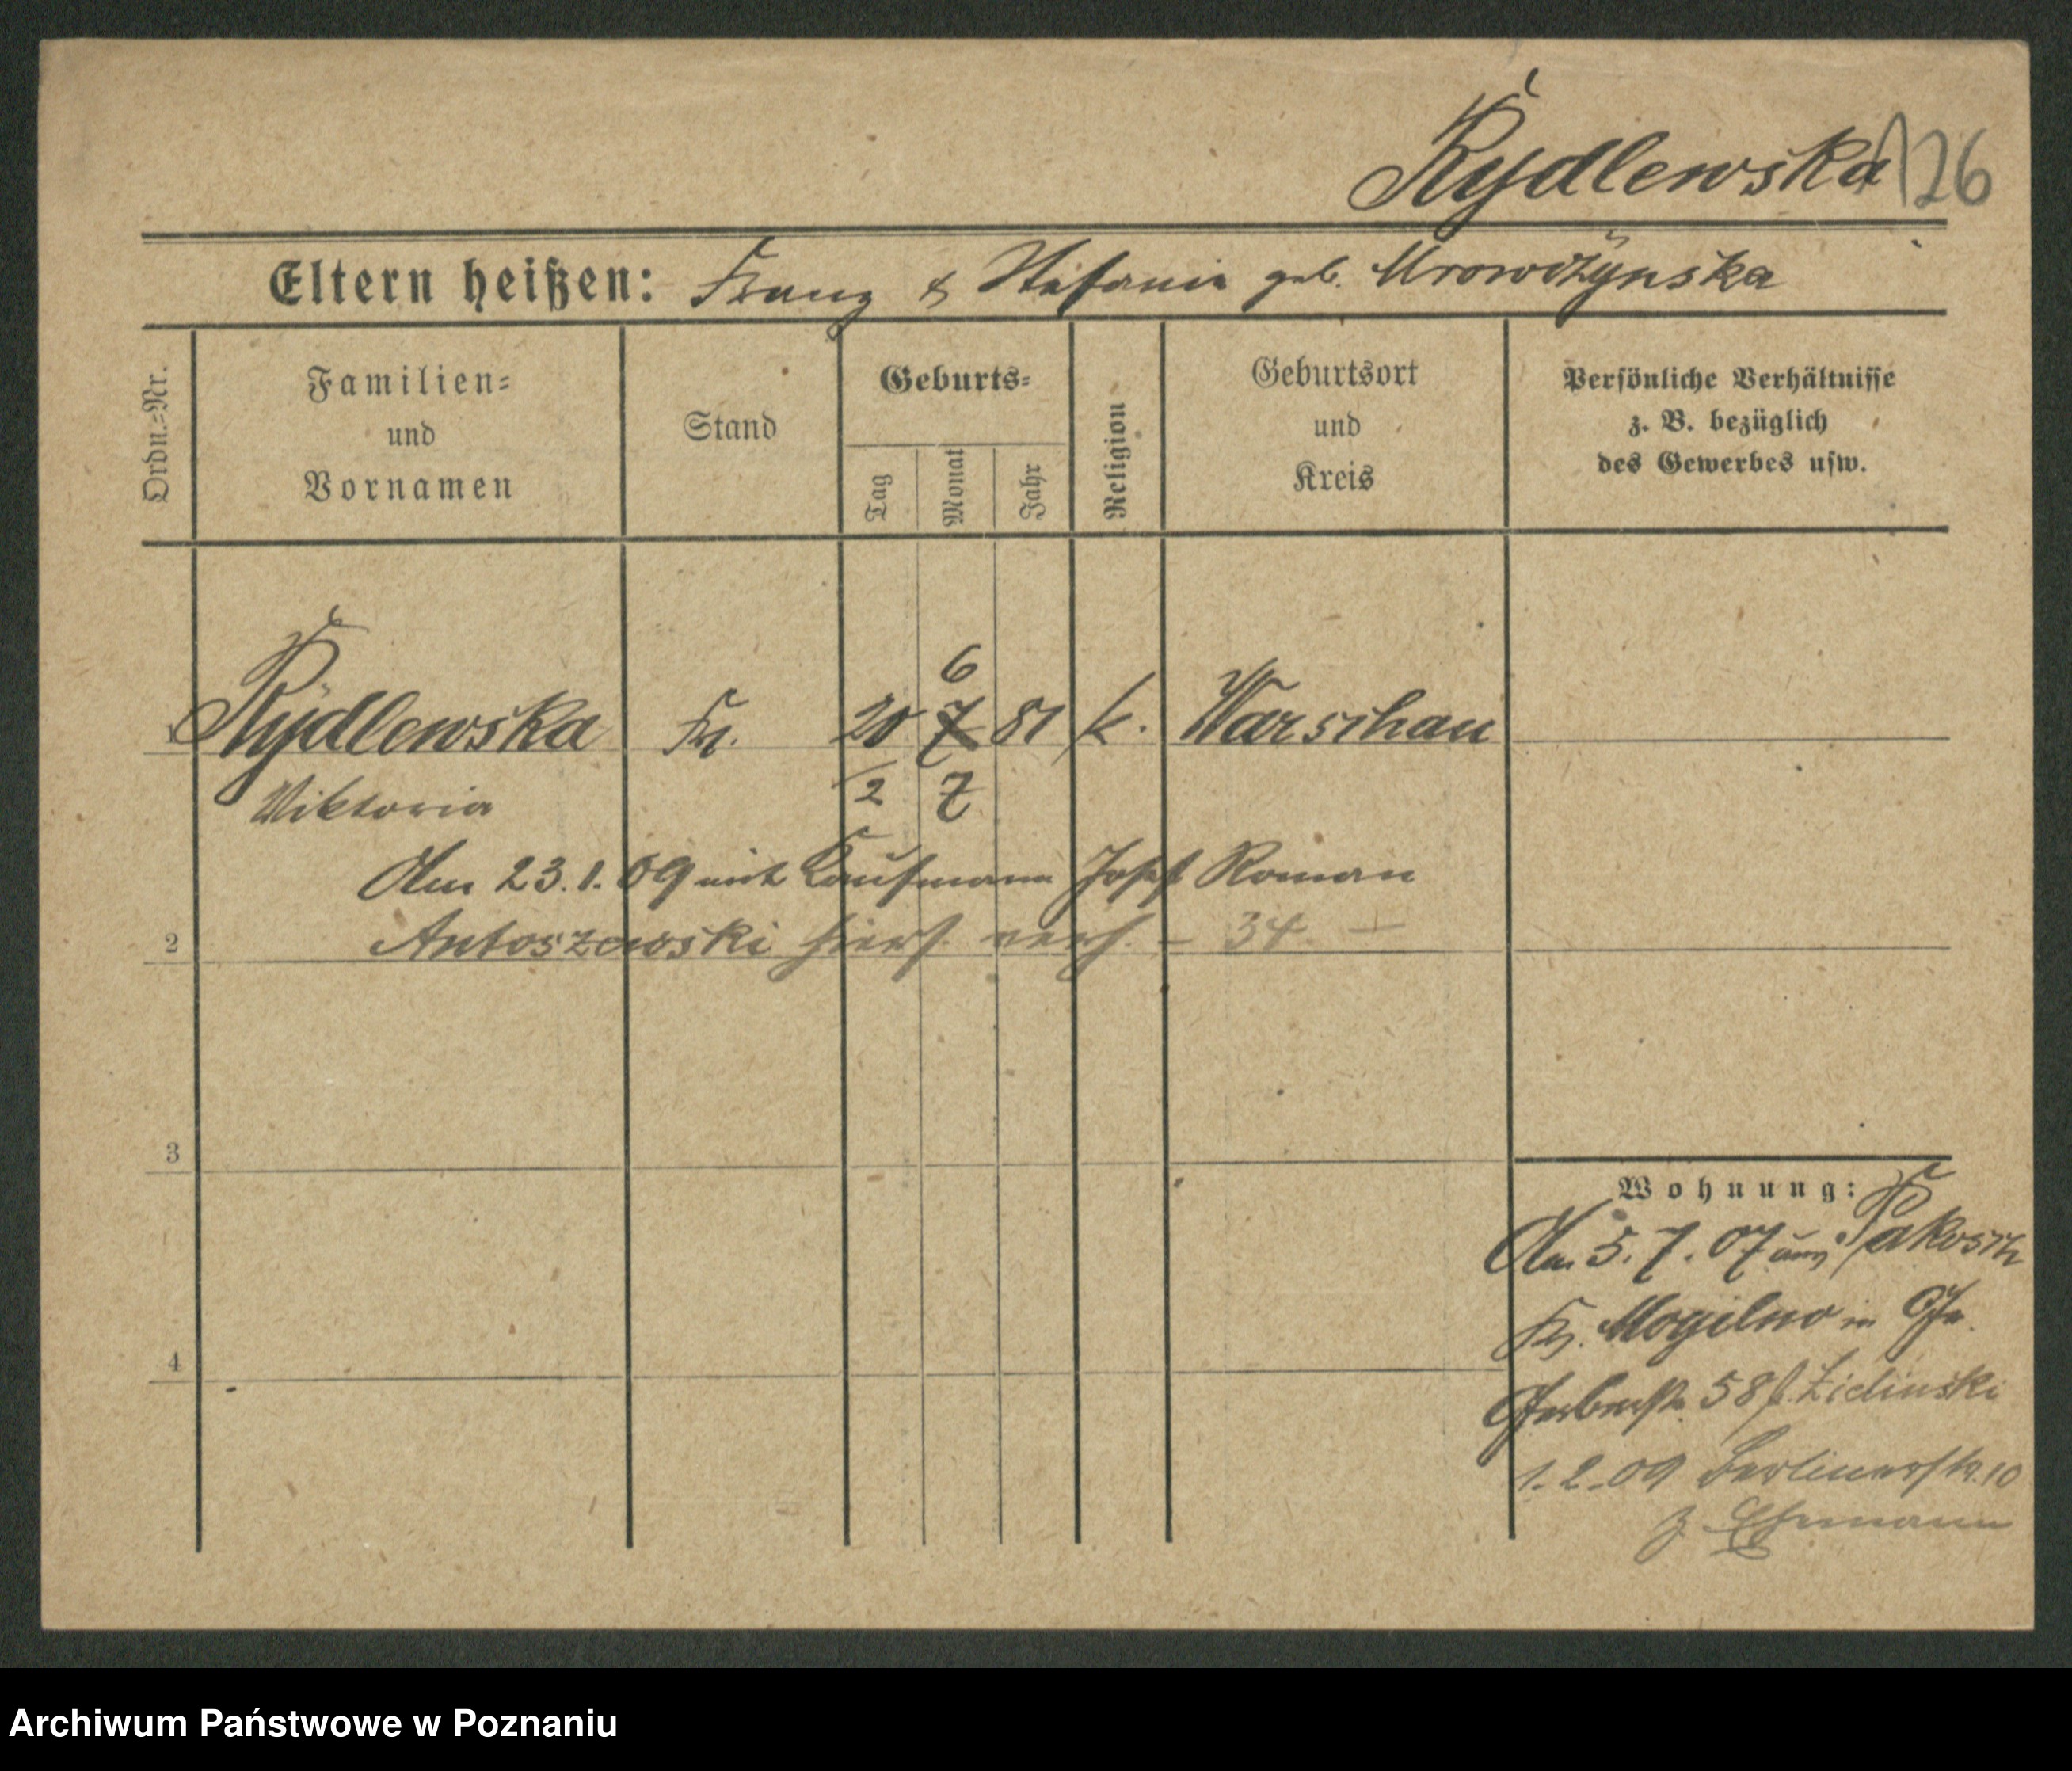 Rydlewska 126
Eltern heißen: Franz & Stefania geb. Mrowczynska
Ordn.=Nr.
Familien=
und
Vornamen
Stand
Geburts=
Tag
Monat
Jahr
Religion
Geburtsort
und
Kreis
Persönliche Verhältnisse
z. B. bezüglich
des Gewerbes usw.
6
1 Rydlewska Frl. 20 7 81 k. Warschau
Viktoria 2 7
Am 23.1.09 mit Kaufmann Josef Roman
2 Antoszewski hiers. verh. - 34 -
3
Wohnung:
Am 5.7.07 aus Pakosch
Kr. Mogilno in
4
58 b. Zielinski
1.2.09 Berlinerstr. 10
z. Ehemann
Archiwum Państwowe w Poznaniu